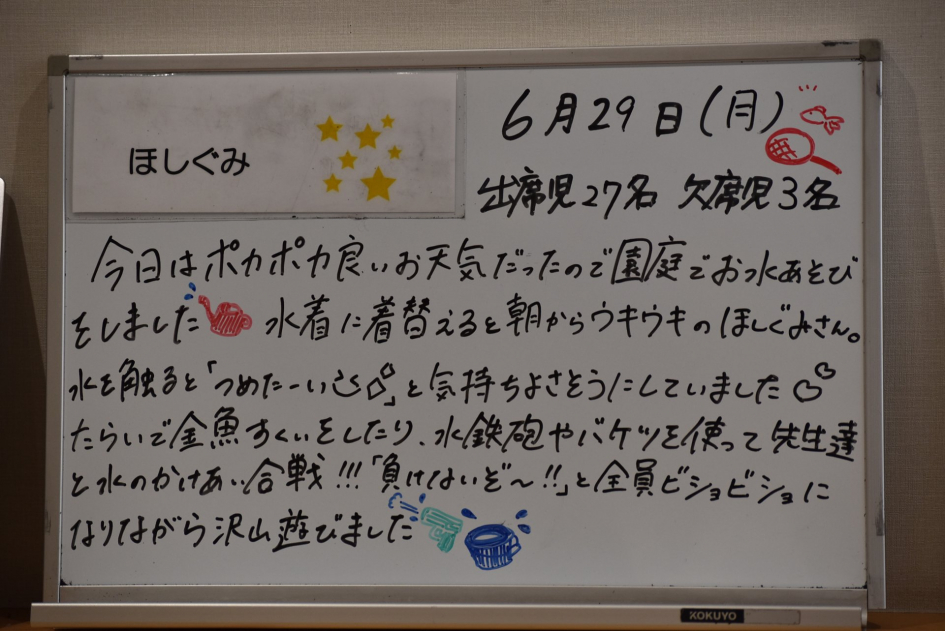 ほしぐみ
6月29日(月)
出席児27名 欠席児3名
今日はポカポカ良いお天気だったので園庭でお水あそび
をしました 水着に着替えると朝からウキウキのほしぐみさん。
水を触ると「つめたーい」と気持ちよさそうにしていました
たらいで金魚すくいをしたり、水鉄砲やバケツを使って先生達
と水のかけあい合戦!!!「負けないぞ〜!!」と全員ビショビショに
なりながら沢山遊びました
KOKUYO